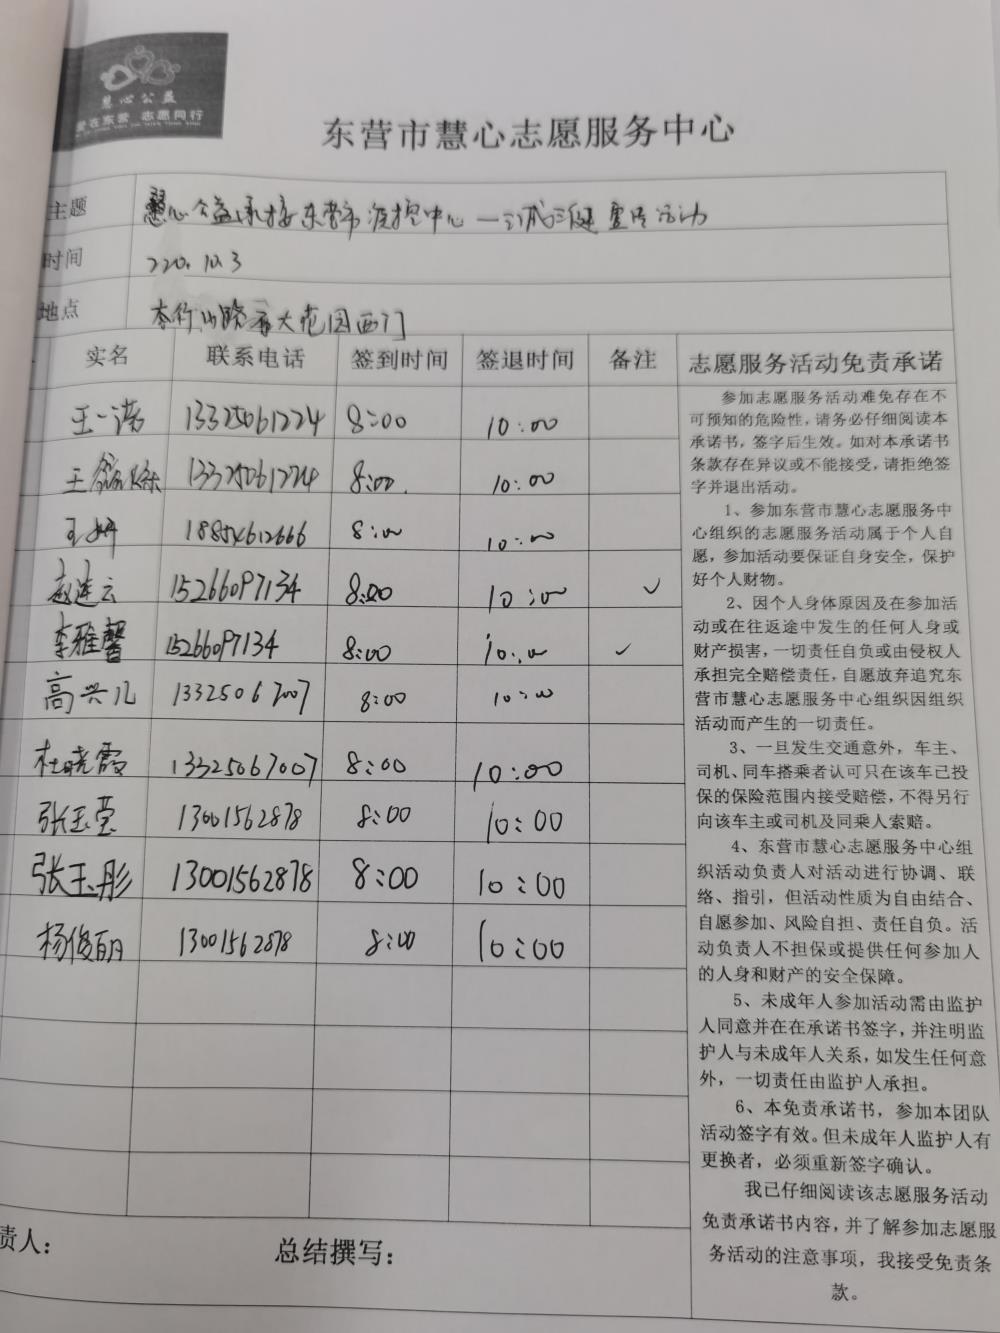 慧心公益
爱在东营 志愿同行
东营市慧心志愿服务中心
主题 慧心公益承接东营市疾控中心一三减三健宣传活动
时间 220.10.3
地点 西门
实名 联系电话 签到时间 签退时间 备注 志愿服务活动免责承诺
王一诺 13325061224 8:00 10:00
王 13325061224 8:00 10:00
王妍 18854612666 8:00 10:00
赵连云 15266097134 8:00 10:00 ✓
李雅馨 15266097134 8:00 10:00 ✓
高兴儿 13325067007 8:00 10:00
杜晓霞 13325067007 8:00 10:00
张玉莹 13001562878 8:00 10:00
张玉彤 13001562878 8:00 10:00
杨俊丽 13001562878 8:00 10:00
参加志愿服务活动难免存在不
可预知的危险性，请务必仔细阅读本
承诺书，签字后生效。如对本承诺书
条款存在异议或不能接受，请拒绝签
字并退出活动。
1、参加东营市慧心志愿服务中
心组织的志愿服务活动属于个人自
愿，参加活动要保证自身安全，保护
好个人财物。
2、因个人身体原因及在参加活
动或在往返途中发生的任何人身或
财产损害，一切责任自负或由侵权人
承担完全赔偿责任，自愿放弃追究东
营市慧心志愿服务中心组织因组织
活动而产生的一切责任。
3、一旦发生交通意外，车主、
司机、同车搭乘者认可只在该车已投
保的保险范围内接受赔偿，不得另行
向该车主或司机及同乘人索赔。
4、东营市慧心志愿服务中心组
织活动负责人对活动进行协调、联
络、指引，但活动性质为自由结合、
自愿参加、风险自担、责任自负。活
动负责人不担保或提供任何参加人
的人身和财产的安全保障。
5、未成年人参加活动需由监护
人同意并在在承诺书签字，并注明监
护人与未成年人关系，如发生任何意
外，一切责任由监护人承担。
6、本免责承诺书，参加本团队
活动签字有效。但未成年人监护人有
更换者，必须重新签字确认。
我已仔细阅读该志愿服务活动
免责承诺书内容，并了解参加志愿服
务活动的注意事项，我接受免责条
款。
责人： 总结撰写：